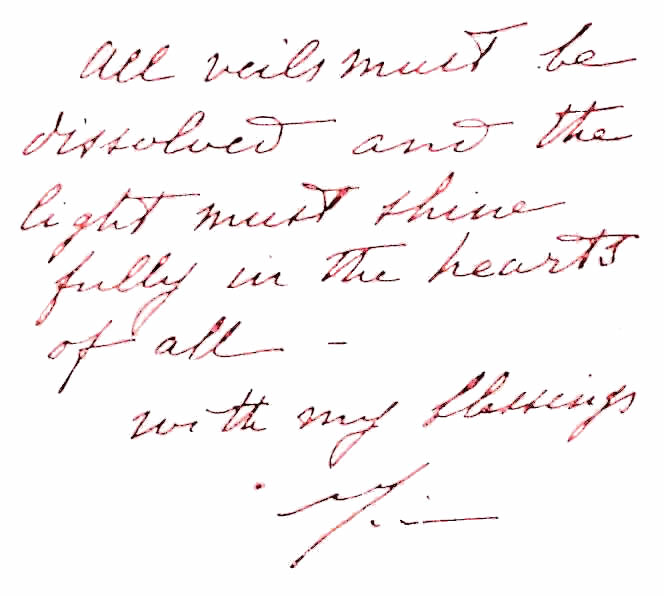 All veils must be
dissolved and the
light must shine
fully in the hearts
of all –
with my blessings